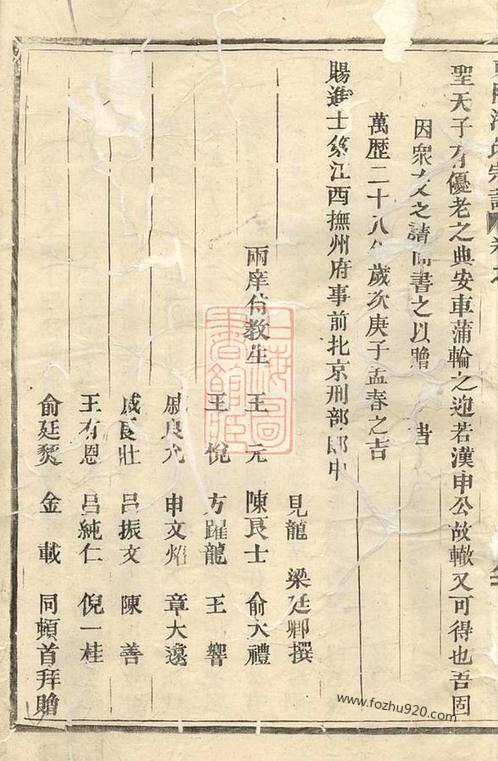 聖天子有優老之典安車蒲輪之迎若漢申公故轍又可得也吾固
因衆友之請而書之以贈 旹
萬歷二十八年歲次庚子孟春之吉
賜進士 江西撫州府事前北京刑部郎中
見龍 梁廷卿撰
兩庠侍教生 王 元 陳良士 俞大禮
王 悅 方躍龍 王 響
戚良允 申文焰 章大遠
戚良壯 呂振文 陳 善
王有恩 呂純仁 倪一桂
俞廷爕 金 載 同頓首拜贈
上海圖書館藏
www.fozhu920.com